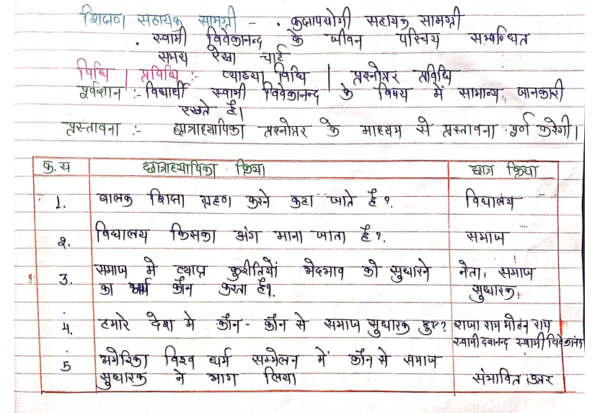 शिक्षण सहायक सामग्री - . कक्षापयोगी सहायक सामग्री
. स्वामी विवेकानन्द के जीवन परिचय सम्बन्धित
समय रेखा चार्ट
विधि | प्रविधि :- व्याख्या विधि | प्रश्नोत्तर प्रविधि
पूर्वज्ञान :- विद्यार्थी स्वामी विवेकानन्द के विषय में सामान्य जानकारी
रखते है।
प्रस्तावना :- छात्राध्यापिका प्रश्नोत्तर के माध्यम से प्रस्तावना पूर्ण करेगी।
क्र.स छात्राध्यापिका क्रिया छात्र क्रिया
1. बालक शिक्षा ग्रहण करने कहा जाते है? विद्यालय
2. विद्यालय किसका अंग माना जाता है? समाज
3. समाज में व्याप्त कुरीतियों भेदभाव को सुधारने नेता, समाज
का कार्य कौन करता है? सुधारक
4. हमारे देश मे कौन-कौन से समाज सुधारक हुए? राजा राम मोहन राय
स्वामी दयानन्द स्वामी विवेकानंद
5 अमेरिका विश्व धर्म सम्मेलन में कौन से समाज
सुधारक ने भाग लिया संभावित उत्तर